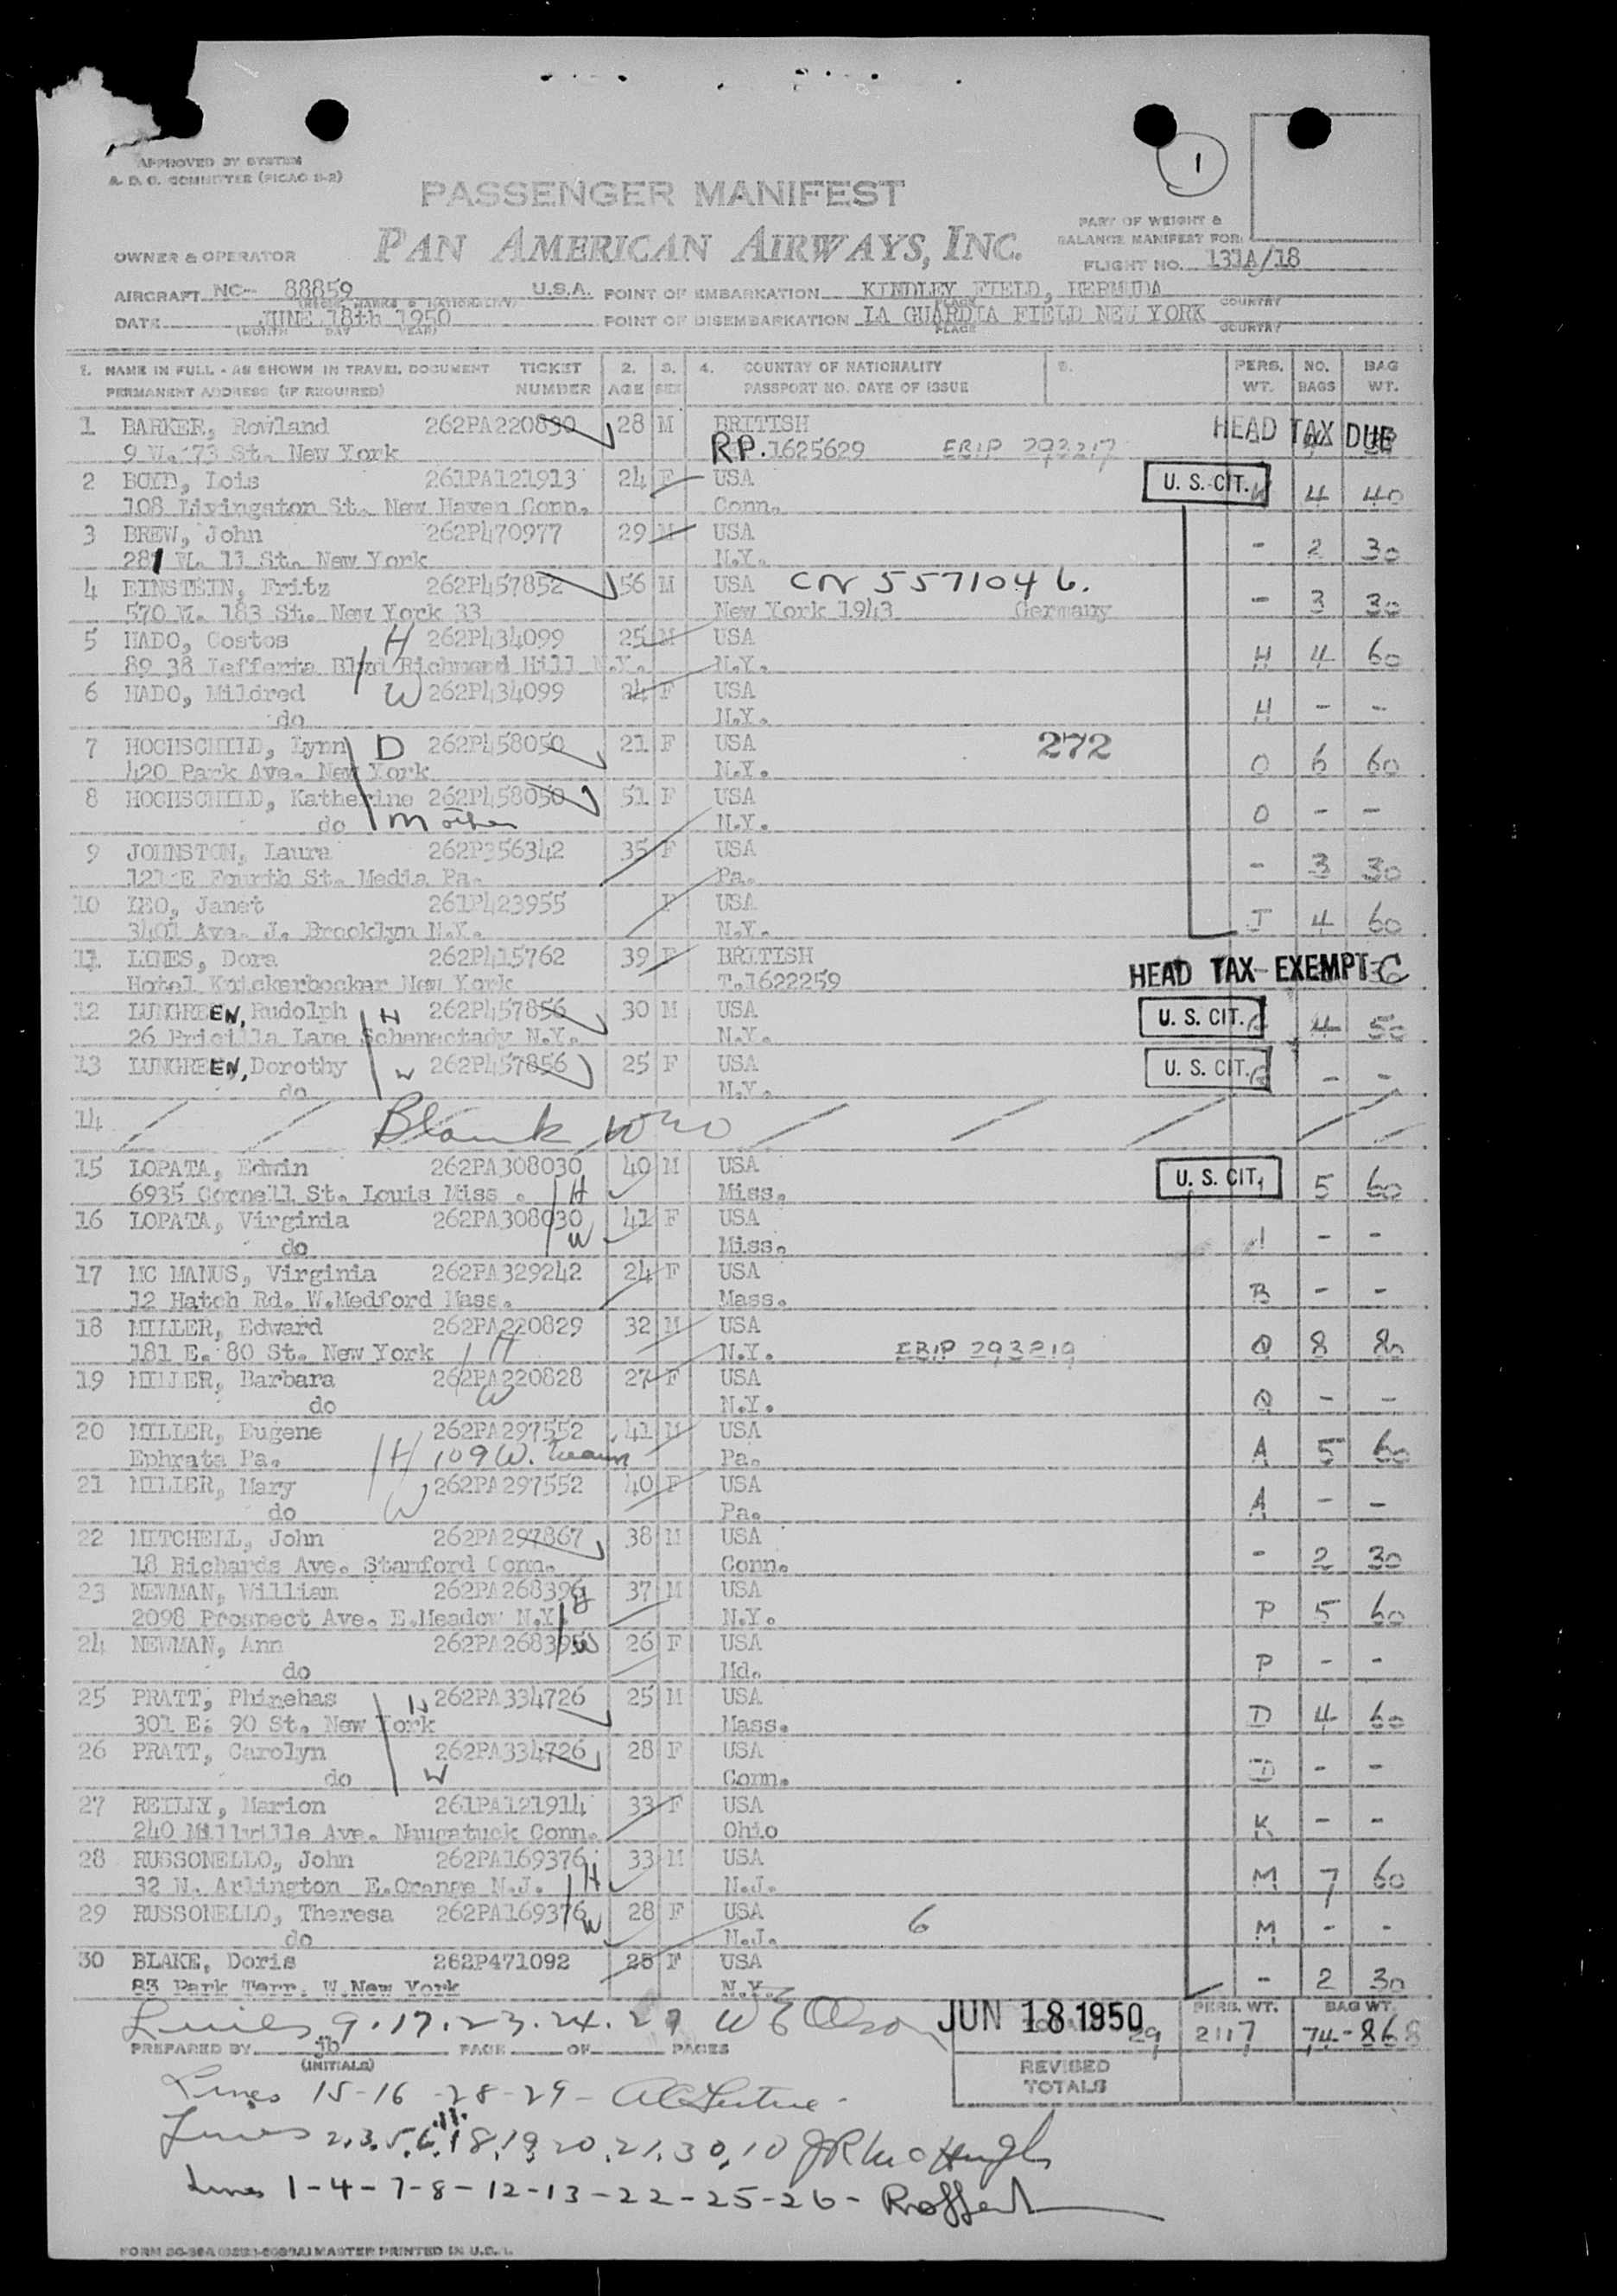 1
APPROVED BY SYSTEM
A. D. C. COMMITTEE (PICAO S-2)
PASSENGER MANIFEST
PART OF WEIGHT &
BALANCE MANIFEST FOR:
OWNER & OPERATOR PAN AMERICAN AIRWAYS, INC.
FLIGHT NO. 131A/18
AIRCRAFT NC- 88859 U.S.A. POINT OF EMBARKATION KINDLEY FIELD, BERMUDA
(REGIS. MARKS & NATIONALITY) PLACE COUNTRY
DATE JUNE 18th 1950 POINT OF DISEMBARKATION LA GUARDIA FIELD NEW YORK
(MONTH DAY YEAR) PLACE COUNTRY
1. NAME IN FULL - AS SHOWN IN TRAVEL DOCUMENT TICKET 2. 3. 4. COUNTRY OF NATIONALITY 5. PERS. NO. BAG
PERMANENT ADDRESS (IF REQUIRED) NUMBER AGE SEX PASSPORT NO. DATE OF ISSUE WT. BAGS WT.
1 BARKER, Rowland 262PA220830 28 M BRITISH HEAD TAX DUE
9 W. 73 St. New York RP.1625629 EBIP 293217
2 BOYD, Lois 261PA121913 24 F USA U. S. CIT. 4 40
108 Livingston St. New Haven Conn. Conn.
3 BREW, John 262P470977 29 M USA - 2 30
281 W. 11 St. New York N.Y.
4 EINSTEIN, Fritz 262P457852 56 M USA CN 5571046. - 3 30
570 W. 183 St. New York 33 New York 1943 Germany
5 HADO, Costos H 262P434099 25 M USA H 4 60
89 38 Lefferts Blvd Richmond Hill N.Y. N.Y.
6 HADO, Mildred W 262P434099 24 F USA H - -
do N.Y.
7 HOCHSCHILD, Lynn D 262P458050 21 F USA 272 O 6 60
420 Park Ave. New York N.Y.
8 HOCHSCHILD, Katherine 262P458050 51 F USA O - -
do Mother N.Y.
9 JOHNSTON, Laura 262P356342 35 F USA - 3 30
121 E Fourth St. Media Pa. Pa.
10 LEO, Janet 261P423955 F USA J 4 60
3401 Ave. J. Brooklyn N.Y. N.Y.
11 LINES, Dora 262P415762 39 F BRITISH HEAD TAX EXEMPT
Hotel Knickerbocker New York T.1622259
12 LUNGREEN, Rudolph H 262P457856 30 M USA U. S. CIT. 4 50
26 Pricilla Lane Schenectady N.Y. N.Y.
13 LUNGREEN, Dorothy W 262P457856 25 F USA U. S. CIT. - -
do N.Y.
14 Blank
15 LOPATA, Edwin 262PA308030 40 M USA U. S. CIT. 5 60
6935 Cornell St. Louis Miss . H Miss.
16 LOPATA, Virginia 262PA308030 41 F USA - -
do W Miss.
17 MC MANUS, Virginia 262PA329242 24 F USA B - -
12 Hatch Rd. W.Medford Mass. Mass.
18 MILLER, Edward 262PA220829 32 M USA Q 8 80
181 E. 80 St. New York H N.Y. EBIP 293219
19 MILLER, Barbara 262PA220828 27 F USA Q - -
do W N.Y.
20 MILLER, Eugene 262PA297552 41 M USA A 5 60
Ephrata Pa. H 109 W. Pa.
21 MILLER, Mary 262PA297552 40 F USA A - -
do W Pa.
22 MITCHELL, John 262PA297867 38 M USA - 2 30
18 Richards Ave. Stamford Conn. Conn.
23 NEWMAN, William 262PA268396 H 37 M USA P 5 60
2098 Prospect Ave. E.Meadow N.Y. N.Y.
24 NEWMAN, Ann 262PA268395 W 26 F USA P - -
do Md.
25 PRATT, Phinehas H 262PA334726 25 M USA D 4 60
301 E. 90 St. New York Mass.
26 PRATT, Carolyn 262PA334726 28 F USA D - -
do W Conn.
27 REILLY, Marion 261PA121914 33 F USA K - -
240 Millville Ave. Naugatuck Conn. Ohio
28 RUSSONELLO, John 262PA169376 33 M USA M 7 60
32 N. Arlington E.Orange N.J. H N.J.
29 RUSSONELLO, Theresa 262PA169376 W 28 F USA 6 M - -
do N.J.
30 BLAKE, Doris 262P471092 25 F USA - 2 30
83 Park Terr. W.New York N.Y.
Lines 9.17.23.24.27 W E Olson JUN 18 1950 29 PERS. WT. 2117 BAG WT. 74-868
PREPARED BY jb PAGE OF PAGES
(INITIALS) REVISED TOTALS
Lines 15-16-28-29-
Lines 2,3,5,6,18,19,20,21,30,10 JR McHugh
11.
Lines 1-4-7-8-12-13-22-25-26-
MASTER PRINTED IN U.S.A.